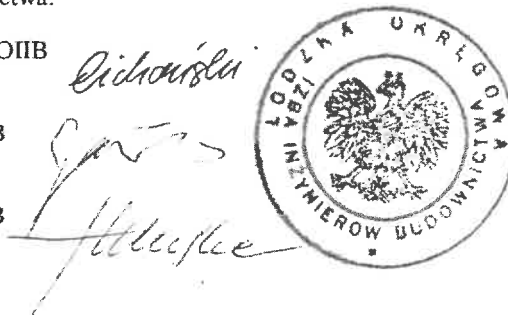 ctwa.
OIIB
Cichoński
B
B
ŁÓDZKA OKRĘGOWA
IZBA INŻYNIERÓW BUDOWNICTWA